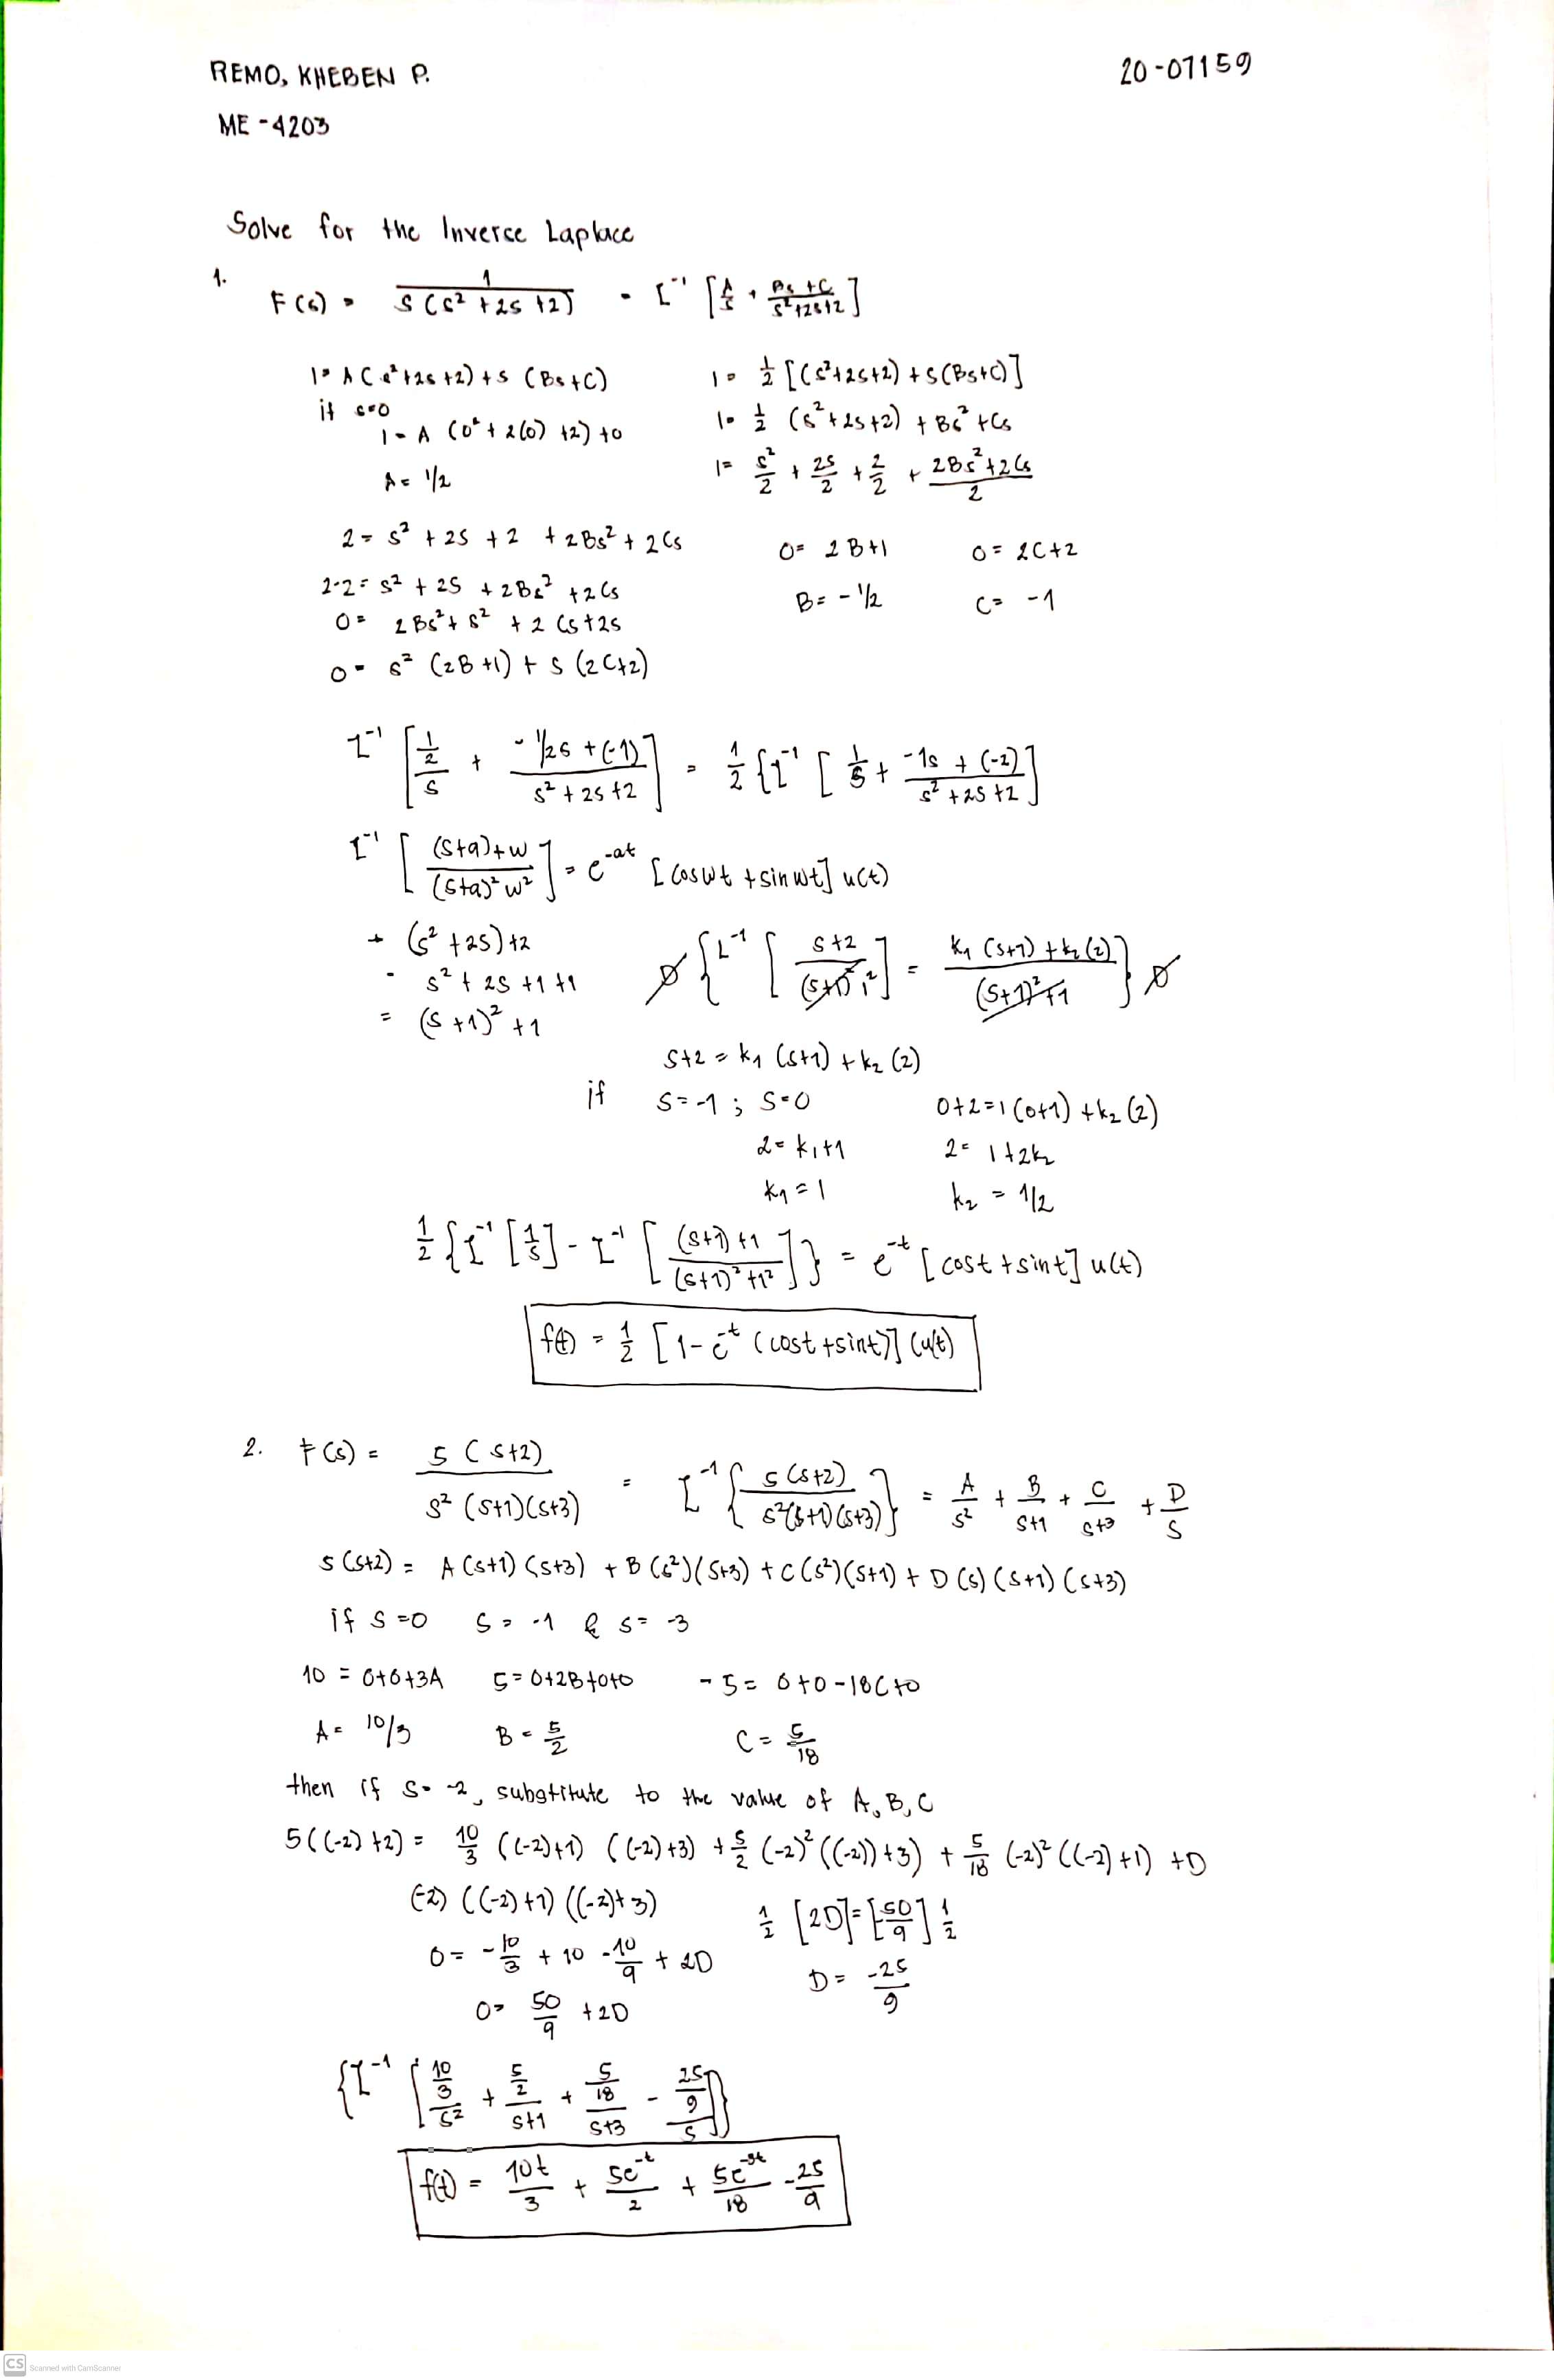 REMO, KHEBEN P. 20-07159
ME-4203
Solve for the Inverse Laplace
1. F(s) = 1 / s(s² + 2s + 2) = L⁻¹ [A/s + (Bs + C)/(s² + 2s + 2)]
1 = A(s² + 2s + 2) + s(Bs + C)
if s=0
1 = A(0² + 2(0) + 2) + 0
A = 1/2
1 = 1/2 [(s² + 2s + 2) + s(Bs + C)]
1 = 1/2 (s² + 2s + 2) + Bs² + Cs
1 = s²/2 + 2s/2 + 2/2 + (2Bs² + 2Cs)/2
2 = s² + 2s + 2 + 2Bs² + 2Cs
2-2 = s² + 2s + 2Bs² + 2Cs
0 = 2Bs² + s² + 2Cs + 2s
0 = s²(2B + 1) + s(2C+2)
0 = 2B+1 0 = 2C+2
B = -1/2 C = -1
L⁻¹ [(1/2)/s + (-1/2s + (-1))/(s² + 2s + 2)] = 1/2 {L⁻¹ [1/s + (-1s + (-2))/(s² + 2s + 2)]
L⁻¹ [((s+a)+w)/((s+a)² w²)] = e^-at [cos wt + sin wt] u(t)
+ (s² + 2s) + 2
= s² + 2s + 1 + 1
= (s+1)² + 1
∅ {L⁻¹ [(s+2)/((s+1)² 1²)] = (k₁(s+1) + k₂(2))/((s+1)² + 1)} ∅
s+2 = k₁(s+1) + k₂(2)
if s = -1 ; s = 0 0+2 = 1(0+1) + k₂(2)
2 = k₁+1 2 = 1+2k₂
k₁ = 1 k₂ = 1/2
1/2 {L⁻¹ [1/s] - L⁻¹ [((s+1)+1)/((s+1)² + 1²)]} = e^-t [cost + sint] u(t)
f(t) = 1/2 [1 - e^-t (cost + sint)] (u(t)
2. F(s) = 5(s+2) / s²(s+1)(s+3) = L⁻¹ {5(s+2) / s²(s+1)(s+3)} = A/s² + B/(s+1) + C/(s+3) + D/s
5(s+2) = A(s+1)(s+3) + B(s²)(s+3) + C(s²)(s+1) + D(s)(s+1)(s+3)
if s = 0 s = -1 & s = -3
10 = 0+0+3A 5 = 0+2B+0+0 -5 = 0+0-18C+0
A = 10/3 B = 5/2 C = 5/18
then if s = -2, substitute to the value of A, B, C
5((-2)+2) = 10/3 ((-2)+1)((-2)+3) + 5/2 (-2)²((-2))+3) + 5/18 (-2)²((-2)+1) + D
(-2)((-2)+1)((-2)+3)
0 = -10/3 + 10 - 10/9 + 2D
0 = 50/9 + 2D
1/2 [2D] = [-50/9] 1/2
D = -25/9
{L⁻¹ [(10/3)/s² + (5/2)/(s+1) + (5/18)/(s+3) - (25/9)/s]}
f(t) = 10t/3 + 5e^-t/2 + 5e^-3t/18 - 25/9
CS Scanned with CamScanner